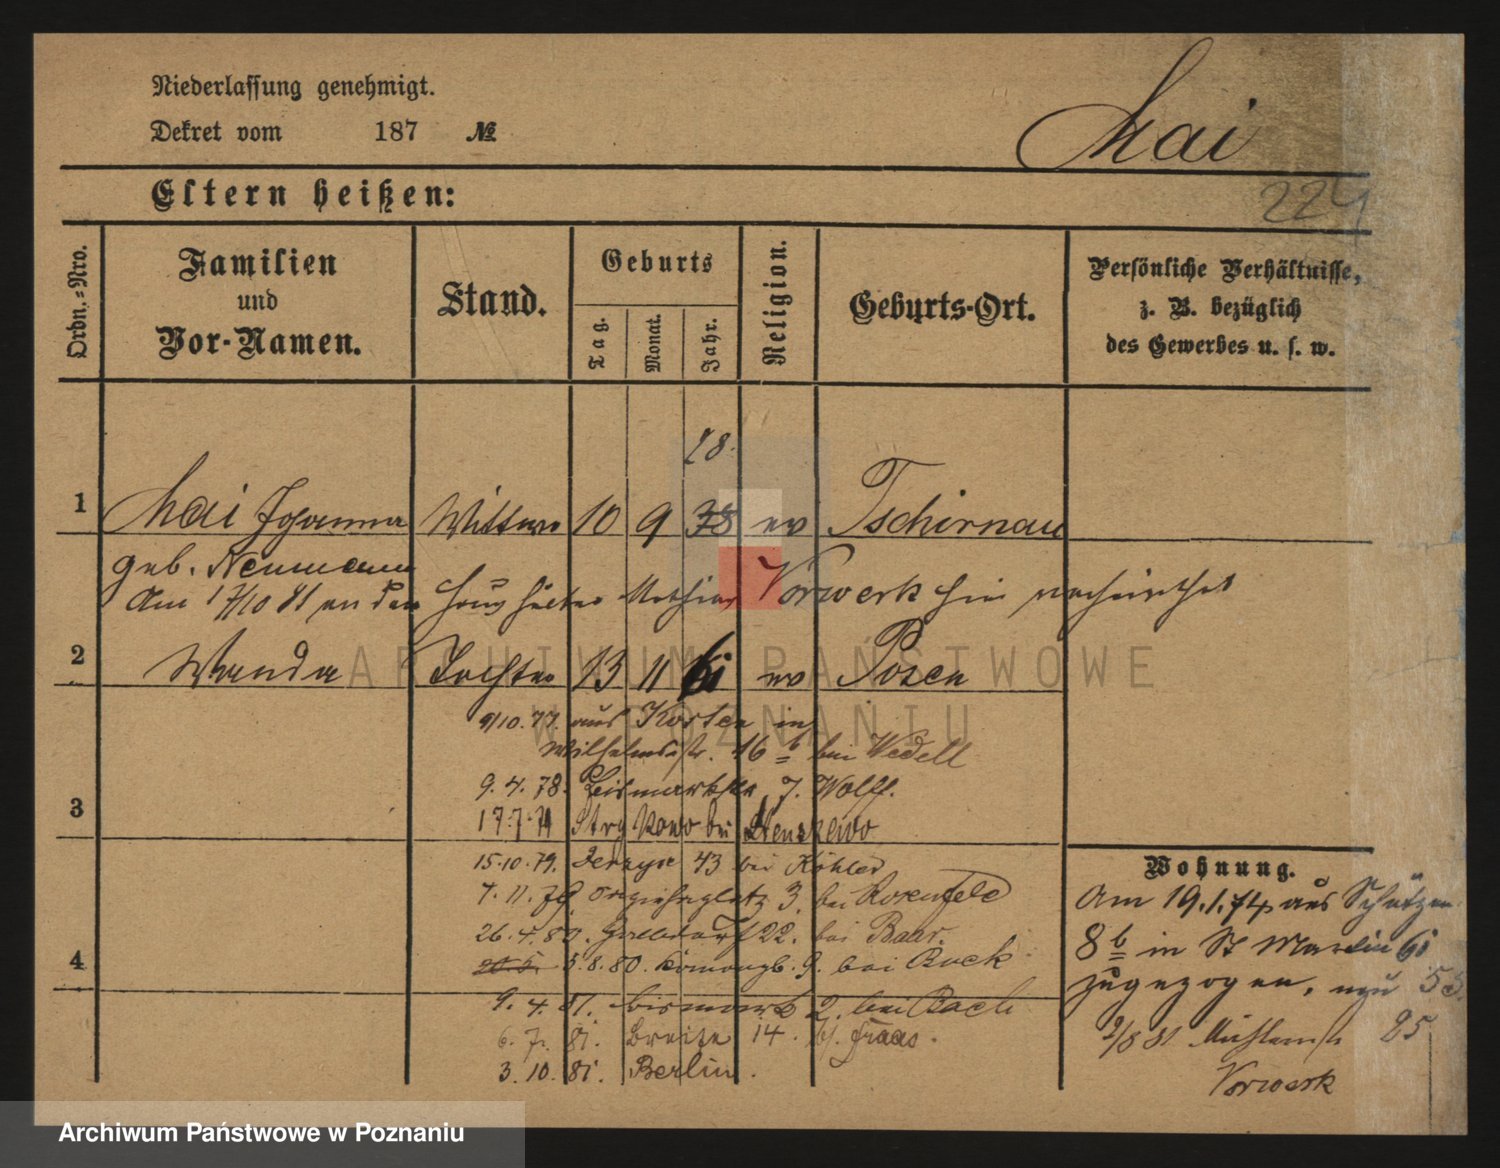 Niederlassung genehmigt.
Dekret vom 187 №
Mai
224
Eltern heißen:
Ordn.=Nro.
Familien
und
Vor-Namen.
Stand.
Geburts
Tag.
Monat.
Jahr.
Religion.
Geburts-Ort.
Persönliche Verhältnisse,
z. B. bezüglich
des Gewerbes u. s. w.
28.
1 Mai Johanna Wittwe 10 9 38 ev Tschirnau
geb. Neumann
Am 17/10 81 an den Haushälter Mathias Vorwerk hier verheirathet
2 Wanda Tochter 13 11 61 ev Posen
9/10. 77. aus Kosten in
Wilhelmstr. 16 b bei Wedell
9. 4. 78. Bismarckstr. 7. Wolff.
3
17.7.79 Strykowo bei Stenszewo
15.10.79. Jerzyce 43 bei Köhler
7. 11. 79. 3. bei Rosenfeld
26. 4. 80. Halbdorf 22. bei Baar.
4
5. 8. 80. 9. bei Buck
9. 4. 81. Bismark 2. bei Bach
6. 7. 81. Breite 14. b/. Fraas.
3. 10. 81. Berlin.
Wohnung.
Am 19.1.74 aus Schützen
8 b in St Martin 61
zugezogen, 53.
2/8 81 Mühlenstr 25
Vorwerk
ARCHIWUM PAŃSTWOWE
W POZNANIU
Archiwum Państwowe w Poznaniu